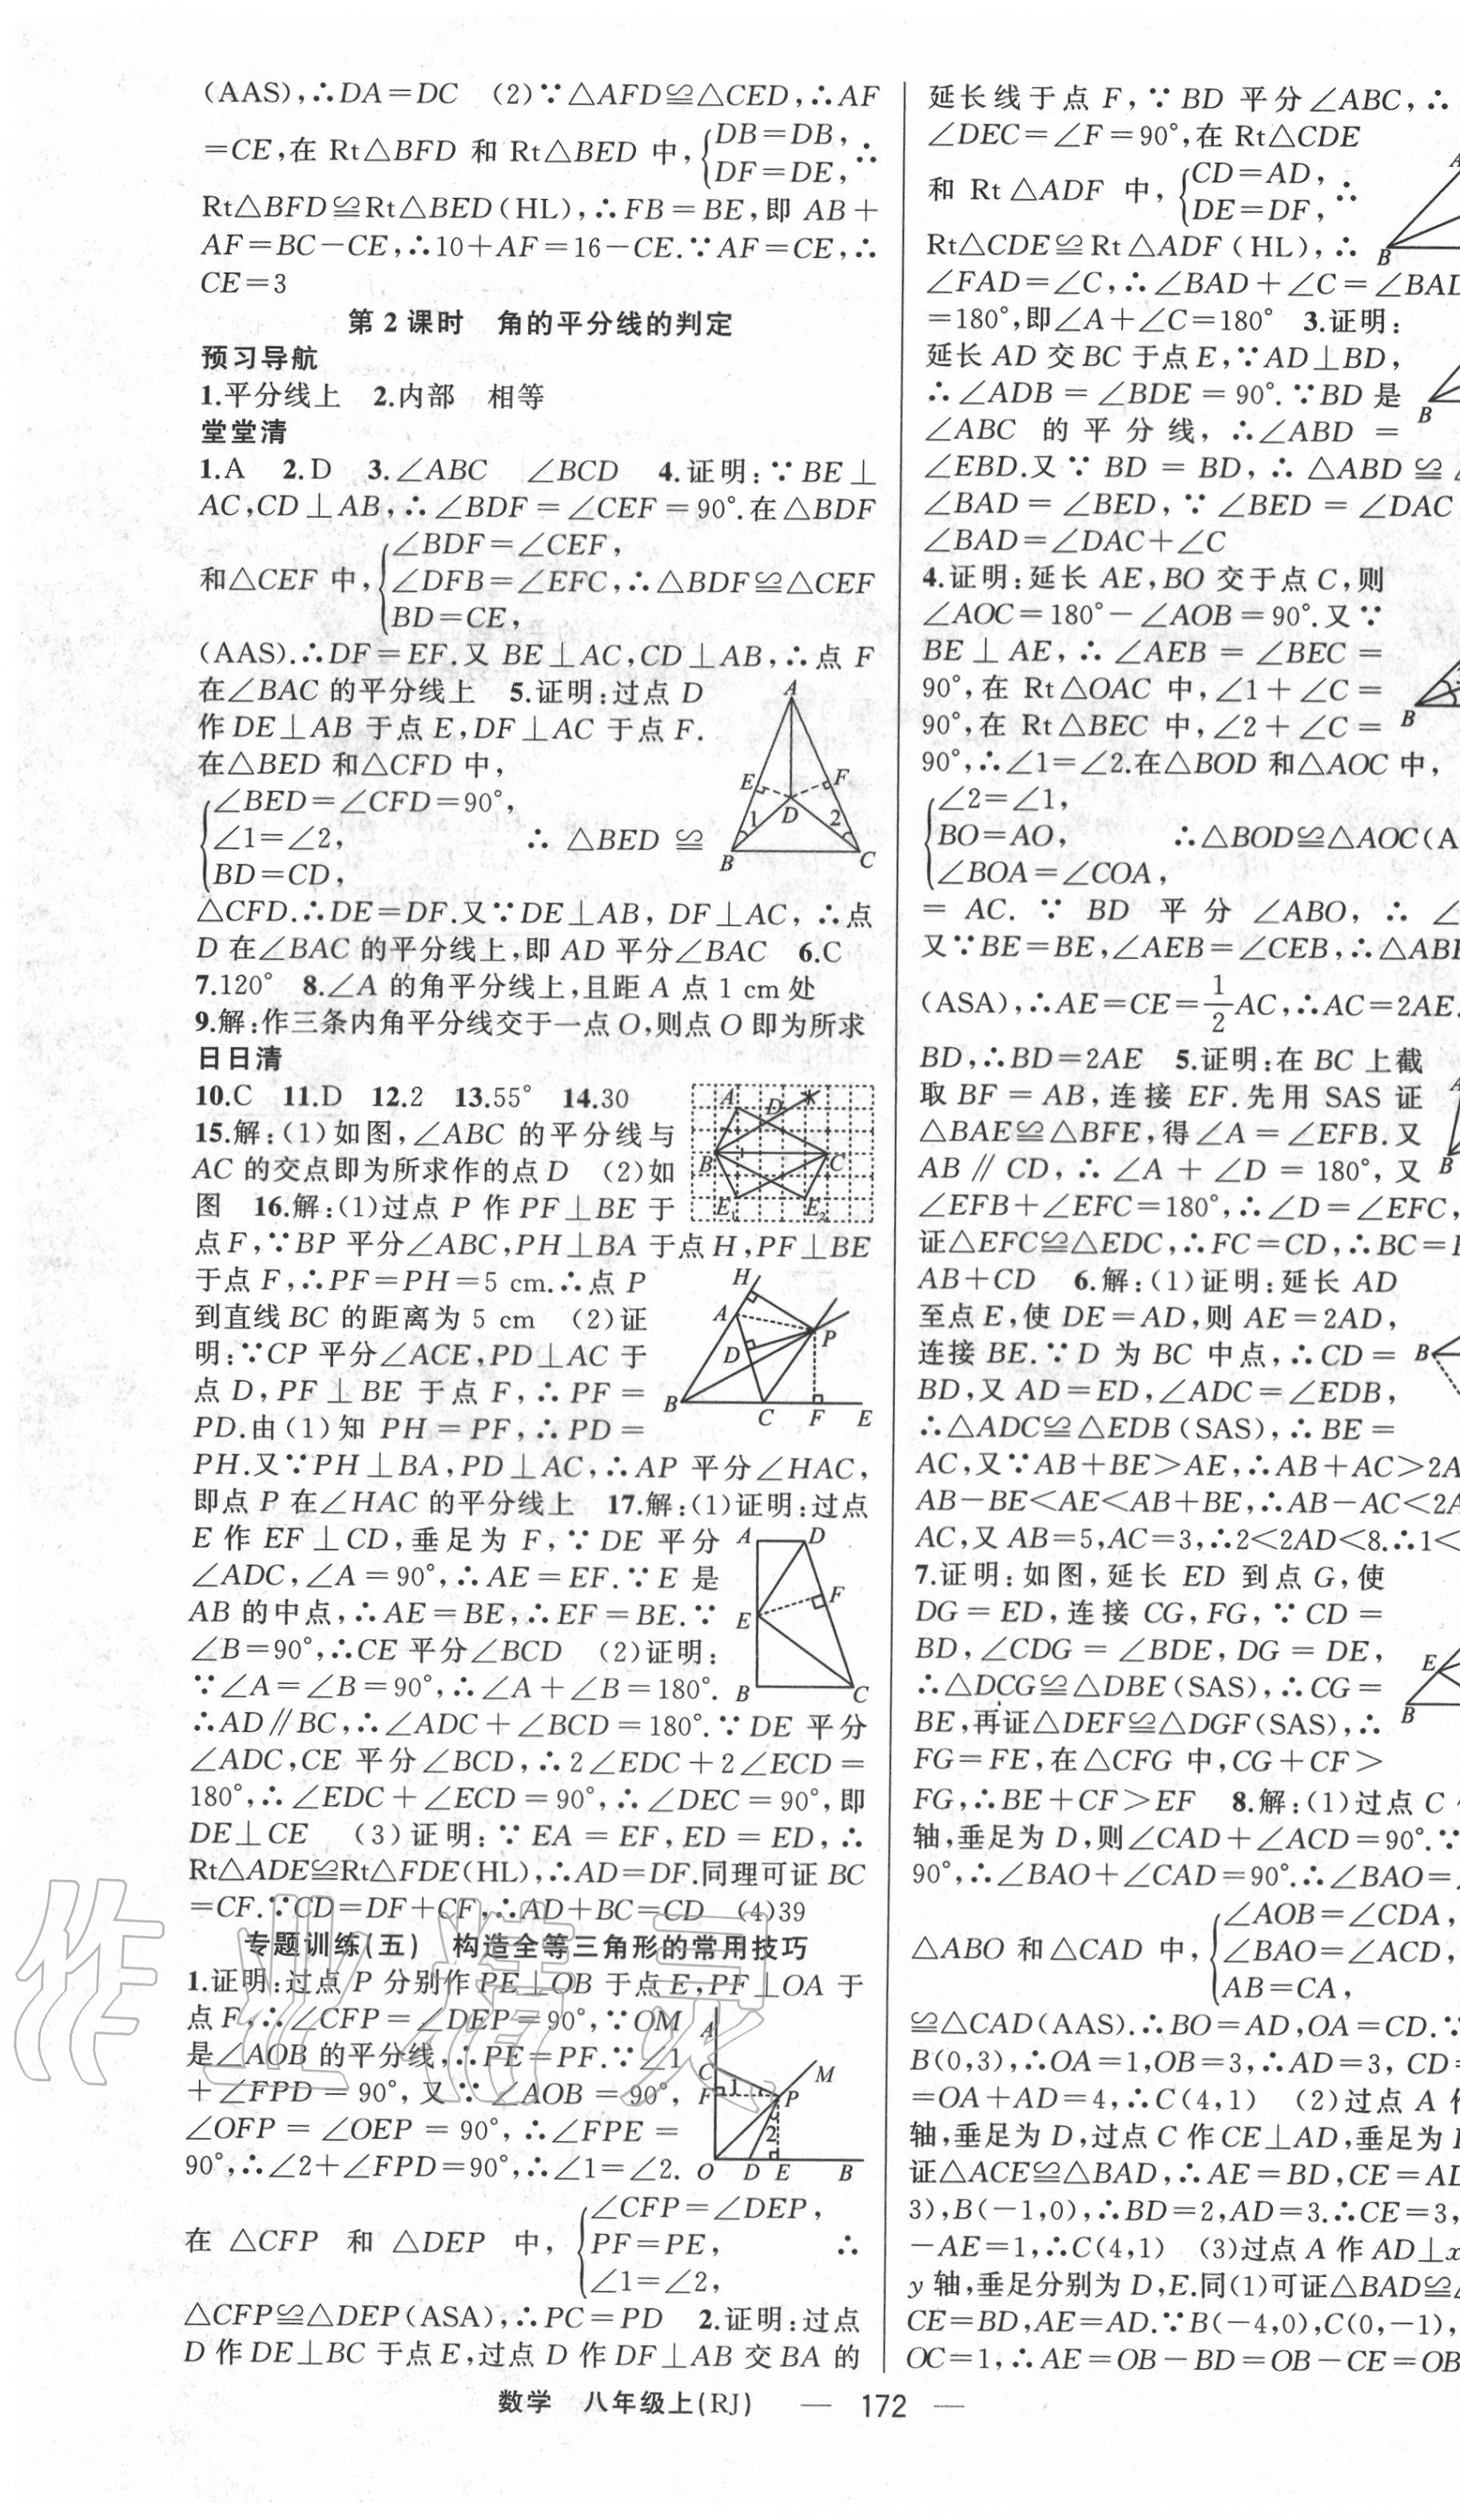 (AAS),∴DA=DC (2)∵△AFD≌△CED,∴AF
=CE,在 Rt△BFD 和 Rt△BED 中,{DB=DB, DF=DE, ∴
Rt△BFD≌Rt△BED(HL),∴FB=BE,即 AB+
AF=BC-CE,∴10+AF=16-CE.∵AF=CE,∴
CE=3
第2课时 角的平分线的判定
预习导航
1.平分线上 2.内部 相等
堂堂清
1.A 2.D 3.∠ABC ∠BCD 4.证明:∵BE⊥
AC,CD⊥AB,∴∠BDF=∠CEF=90°.在△BDF
和△CEF 中,{∠BDF=∠CEF, ∠DFB=∠EFC, BD=CE, ∴△BDF≌△CEF
(AAS).∴DF=EF.又 BE⊥AC,CD⊥AB,∴点 F
在∠BAC 的平分线上 5.证明:过点 D
作 DE⊥AB 于点 E,DF⊥AC 于点 F.
在△BED 和△CFD 中,
{∠BED=∠CFD=90°, ∠1=∠2, BD=CD, ∴ △BED ≌
A
E
F
D
1
2
B
C
△CFD.∴DE=DF.又∵DE⊥AB,DF⊥AC,∴点
D 在∠BAC 的平分线上,即 AD 平分∠BAC 6.C
7.120° 8.∠A 的角平分线上,且距 A 点 1 cm 处
9.解:作三条内角平分线交于一点 O,则点 O 即为所求
日日清
10.C 11.D 12.2 13.55° 14.30
15.解:(1)如图,∠ABC 的平分线与
AC 的交点即为所求作的点 D (2)如
图 16.解:(1)过点 P 作 PF⊥BE 于
A
D
B
C
E₁
E₂
点 F,∵BP 平分∠ABC,PH⊥BA 于点 H,PF⊥BE
于点 F,∴PF=PH=5 cm.∴点 P
到直线 BC 的距离为 5 cm (2)证
明:∵CP 平分∠ACE,PD⊥AC 于
点 D,PF⊥BE 于点 F,∴PF=
PD.由(1)知 PH=PF,∴PD=
H
A
D
P
B
C
F
E
PH.又∵PH⊥BA,PD⊥AC,∴AP 平分∠HAC,
即点 P 在∠HAC 的平分线上 17.解:(1)证明:过点
E 作 EF⊥CD,垂足为 F,∵DE 平分
∠ADC,∠A=90°,∴AE=EF.∵E 是
AB 的中点,∴AE=BE,∴EF=BE.∵
∠B=90°,∴CE 平分∠BCD (2)证明:
∵∠A=∠B=90°,∴∠A+∠B=180°.
A
D
F
E
B
C
∴AD∥BC,∴∠ADC+∠BCD=180°.∵DE 平分
∠ADC,CE 平分∠BCD,∴2∠EDC+2∠ECD=
180°,∴∠EDC+∠ECD=90°,∴∠DEC=90°,即
DE⊥CE (3)证明:∵EA=EF,ED=ED,∴
Rt△ADE≌Rt△FDE(HL),∴AD=DF.同理可证 BC
=CF.∵CD=DF+CF,∴AD+BC=CD (4)39
专题训练(五) 构造全等三角形的常用技巧
1.证明:过点 P 分别作 PE⊥OB 于点 E,PF⊥OA 于
点 F,∴∠CFP=∠DEP=90°,∵OM
是∠AOB 的平分线,∴PE=PF.∵∠1
+∠FPD=90°,又∵∠AOB=90°,
∠OFP=∠OEP=90°,∴∠FPE=
90°,∴∠2+∠FPD=90°,∴∠1=∠2.
A
C
M
F
1
P
2
O
D
E
B
在 △CFP 和 △DEP 中,{∠CFP=∠DEP, PF=PE, ∠1=∠2, ∴
△CFP≌△DEP(ASA),∴PC=PD 2.证明:过点
D 作 DE⊥BC 于点 E,过点 D 作 DF⊥AB 交 BA 的
延长线于点 F,∵BD 平分∠ABC,∴
∠DEC=∠F=90°,在 Rt△CDE
和 Rt△ADF 中,{CD=AD, DE=DF, ∴
Rt△CDE≌Rt△ADF(HL),∴
B
∠FAD=∠C,∴∠BAD+∠C=∠BAD
=180°,即∠A+∠C=180° 3.证明:
延长 AD 交 BC 于点 E,∵AD⊥BD,
∴∠ADB=∠BDE=90°.∵BD 是
B
∠ABC 的平分线,∴∠ABD=
∠EBD.又∵BD=BD,∴△ABD≌
∠BAD=∠BED,∵∠BED=∠DAC
∠BAD=∠DAC+∠C
4.证明:延长 AE,BO 交于点 C,则
∠AOC=180°-∠AOB=90°.又∵
BE⊥AE,∴∠AEB=∠BEC=
90°,在 Rt△OAC 中,∠1+∠C=
90°,在 Rt△BEC 中,∠2+∠C=
B
90°,∴∠1=∠2.在△BOD 和△AOC 中,
{∠2=∠1, BO=AO, ∠BOA=∠COA, ∴△BOD≌△AOC(A
=AC.∵BD 平分∠ABO,∴∠
又∵BE=BE,∠AEB=∠CEB,∴△ABE
(ASA),∴AE=CE=1/2AC,∴AC=2AE.
BD,∴BD=2AE 5.证明:在 BC 上截
取 BF=AB,连接 EF.先用 SAS 证
△BAE≌△BFE,得∠A=∠EFB.又
AB∥CD,∴∠A+∠D=180°,又
B
∠EFB+∠EFC=180°,∴∠D=∠EFC,
证△EFC≌△EDC,∴FC=CD,∴BC=
AB+CD 6.解:(1)证明:延长 AD
至点 E,使 DE=AD,则 AE=2AD,
连接 BE.∵D 为 BC 中点,∴CD=
B
BD,又 AD=ED,∠ADC=∠EDB,
∴△ADC≌△EDB(SAS),∴BE=
AC,又∵AB+BE>AE,∴AB+AC>2A
AB-BE<AE<AB+BE,∴AB-AC<2A
AC,又 AB=5,AC=3,∴2<2AD<8.∴1<
7.证明:如图,延长 ED 到点 G,使
DG=ED,连接 CG,FG,∵CD=
BD,∠CDG=∠BDE,DG=DE,
∴△DCG≌△DBE(SAS),∴CG=
E
B
BE,再证△DEF≌△DGF(SAS),∴
FG=FE,在△CFG 中,CG+CF>
FG,∴BE+CF>EF 8.解:(1)过点 C
轴,垂足为 D,则∠CAD+∠ACD=90°.∵
90°,∴∠BAO+∠CAD=90°.∴∠BAO=
△ABO 和△CAD 中,{∠AOB=∠CDA, ∠BAO=∠ACD, AB=CA,
≌△CAD(AAS).∴BO=AD,OA=CD.∵
B(0,3),∴OA=1,OB=3,∴AD=3,CD=
=OA+AD=4,∴C(4,1) (2)过点 A 作
轴,垂足为 D,过点 C 作 CE⊥AD,垂足为
证△ACE≌△BAD,∴AE=BD,CE=AD
3),B(-1,0),∴BD=2,AD=3.∴CE=3,
-AE=1,∴C(4,1) (3)过点 A 作 AD⊥x
y 轴,垂足分别为 D,E.同(1)可证△BAD≌
CE=BD,AE=AD.∵B(-4,0),C(0,-1),
OC=1,∴AE=OB-BD=OB-CE=OB
数学 八年级上(RJ) — 172 —
作业精灵